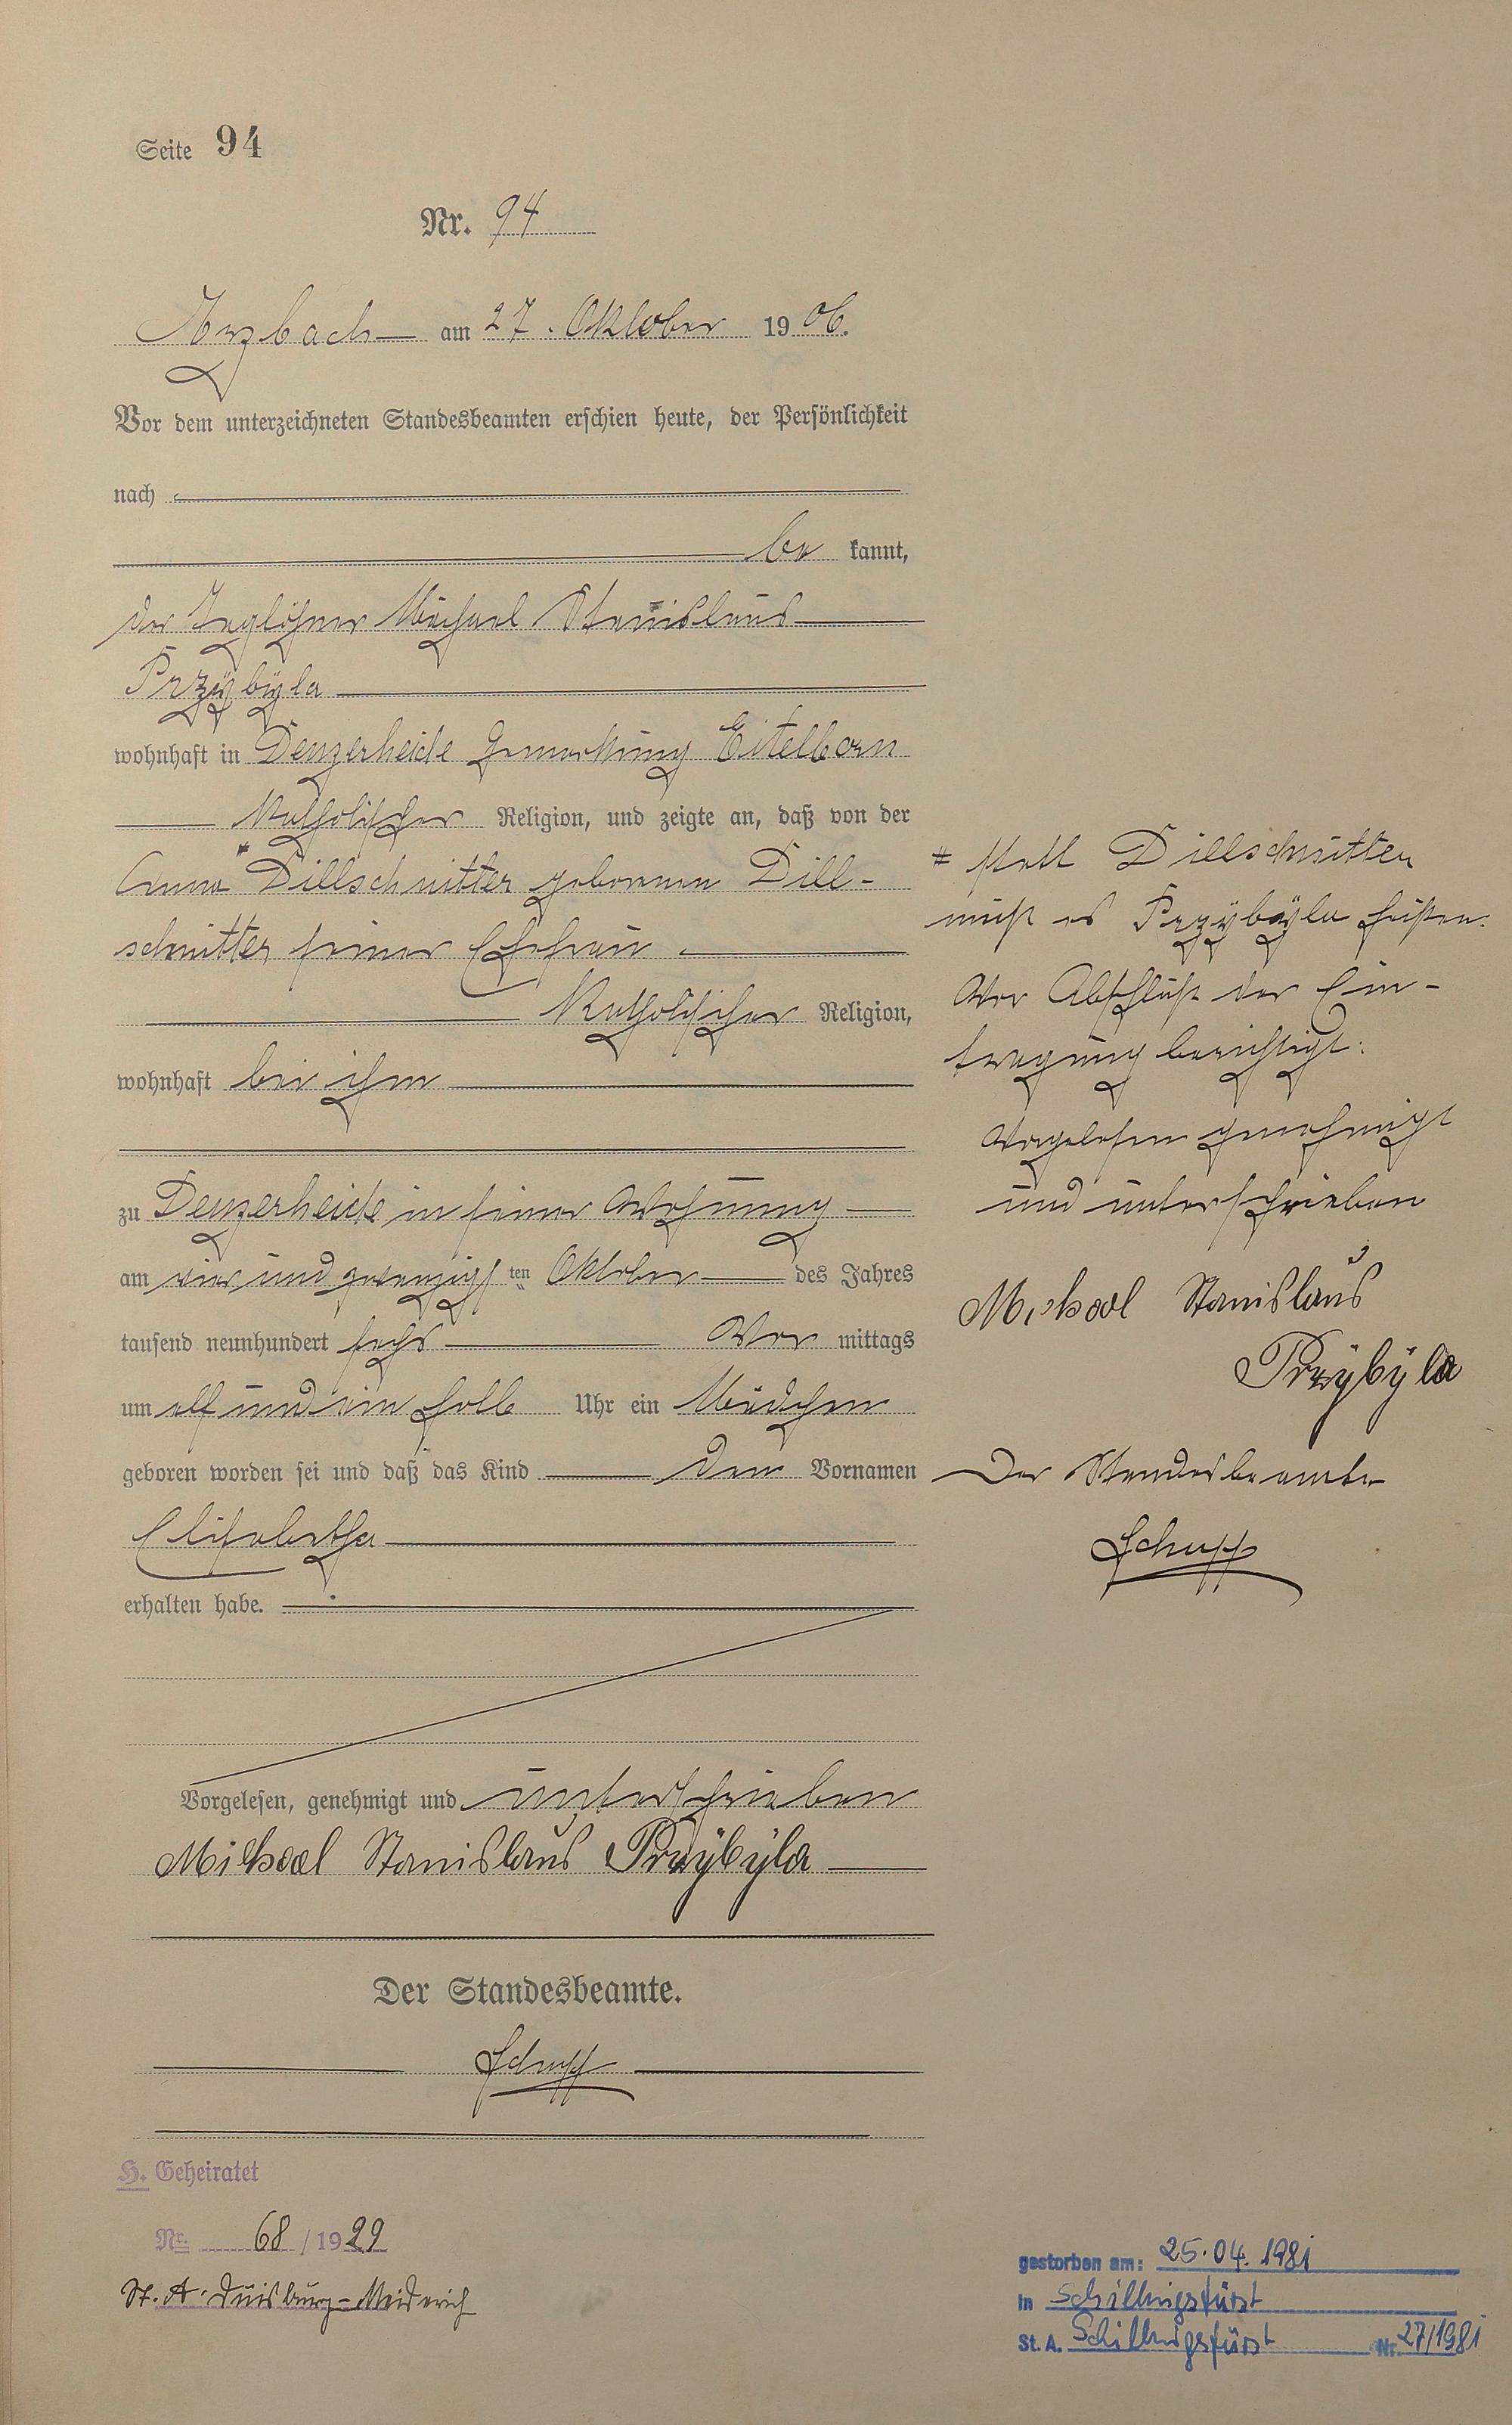 Seite 94
Nr. 94
Arzbach am 27. Oktober 1906.
Vor dem unterzeichneten Standesbeamten erschien heute, der Persönlichkeit
nach
be kannt,
der Taglöhner Michael Stanislaus
Przÿbÿla
wohnhaft in Denzerheide Gemarkung Eitelborn
Katholischer Religion, und zeigte an, daß von der
Anna # Dillschnitter geborenen Dill-
schnitter seiner Ehefrau
Katholischer Religion,
wohnhaft bei ihm
zu Denzerheide in seiner Wohnung
am vier und zwanzigsten Oktober des Jahres
tausend neunhundert sechs Vor mittags
um elf und ein halb Uhr ein Mädchen
geboren worden sei und daß das Kind den Vornamen
Elisabetha
erhalten habe.
Vorgelesen, genehmigt und unterschrieben
Michael Stanislaus Przÿbÿla
Der Standesbeamte.
Schupp
H. Geheiratet
Nr. 68 / 1929
St. A. Duisburg-Meiderich
# statt Dillschnitter
muß es Przÿbÿla heißen.
Vor Abschluß der Ein-
tragung berichtigt.
Vorgelesen genehmigt
und unterschrieben
Michael Stanislaus
Przÿbÿla
Der Standesbeamte
Schupp
gestorben am: 25.04.1981
in Schillingsfürst
St. A. Schillingsfürst Nr. 27/1981